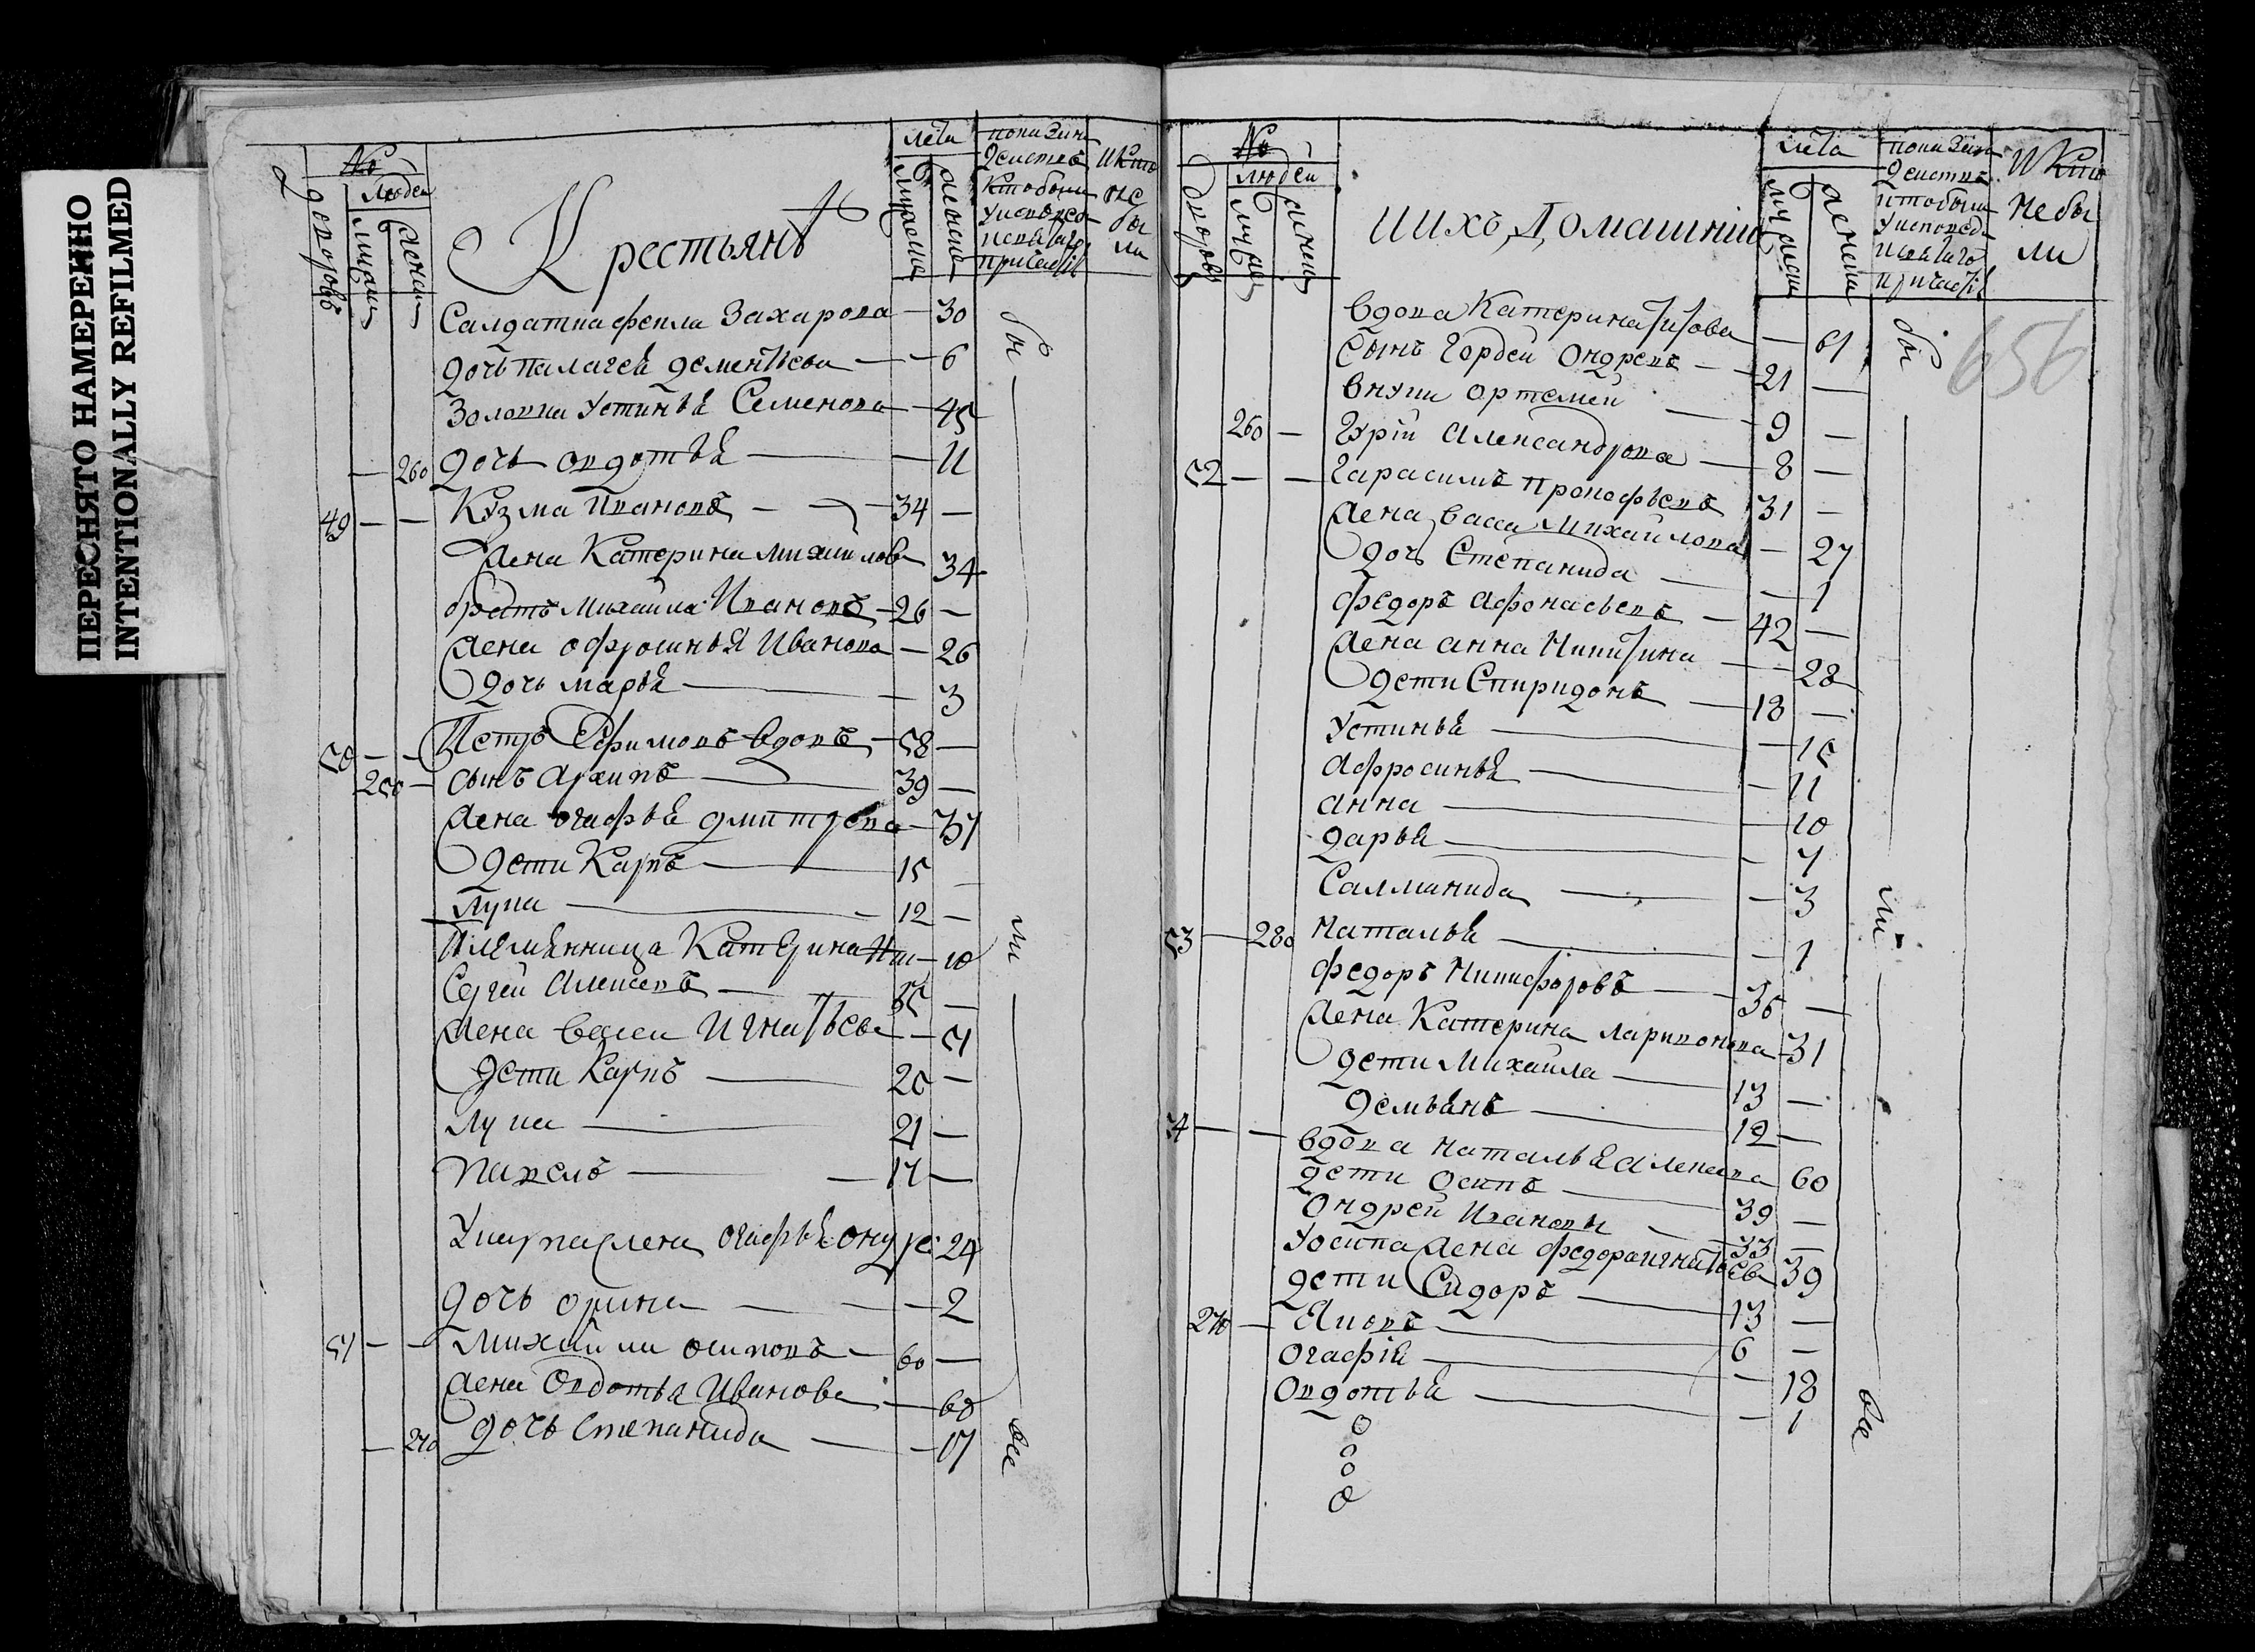 ПЕРЕСНЯТО НАМЕРЕННО
INTENTIONALLY REFILMED
№
дворовъ
Людеи
мужеи
женеи
Крестьянъ
лета
мужеска
женска
показани
действ
кто были
у исповед
и святаго
причастiя
и кто
не
бы
ли
Салдатка Фекла Захарова — 30
дочь Палагея Дементьева — — 6
золовка Устинья Семенова — 45
— 260 дочь Овдотья — — 11
49 — — Кузма Ивановъ — 34 —
жена Катерина Михаилова 34
братъ Михаила Ивановъ — 26 —
жена Офросинья Иванова — 26
дочь Марья — 3
50 — — Петръ Ефимовъ вдовъ — 58 —
250 — сынъ Архипъ 39 —
жена Огафья Дмитрева — 37
дети Карпъ 15 —
Лупа — 12 —
племянница Катерина — 10
Сергеи Алексеевъ — 55 —
жена Васса Игнатьева — 51
дети Карпъ — 25 —
Лупа — 21 —
Павелъ — 17 —
У Карпа жена Огафья Ондре 24
дочь Орина — — 2
51 — — Михаила Осиповъ — 60 —
жена Овдотья Иванова — 60
— 270 дочь Степанида — — 17
бы
ли
все
№
дворовъ
людеи
мужес
женеи
и ихъ Домашнiи
лета
мужеска
женска
показани
действ
кто были
у исповед
и святаго
причастi
и кто
не бы
ли
656
вдова Катерина Титова — 61
сынъ Гордеи Ондреевъ — — 21 —
внуки Ортемеи — 9 —
260 — Гурiи Александрова — 8 —
52 — — Гарасимъ Прокофьевъ 31 —
жена Васса Михаилова — 27
дочь Степанида — — 1
Федоръ Афонасьевъ — 42 —
жена Анна Никитина — — 28
дети Спиридонъ — 18 —
Устинья — — 15
Афросинья — — 11
Анна — — 10
Дарья — — 7
Саламанида — — 3
53 — 280 Наталья — — 1
Федоръ Никифоровъ — 35 —
жена Катерина Ларивонова — 31
дети Михаила — 13 —
Демьянъ — 12 —
54 — — вдова Наталья Алексеева 60
дети Осипъ — 39 —
Ондреи Ивановы — 33 —
У Осипа жена Федора Игнатьева 39
дети Сидоръ — 13 —
270 — Яковъ — 6 —
Огафiя — — 18
Овдотья — — 1
бы
ли
все